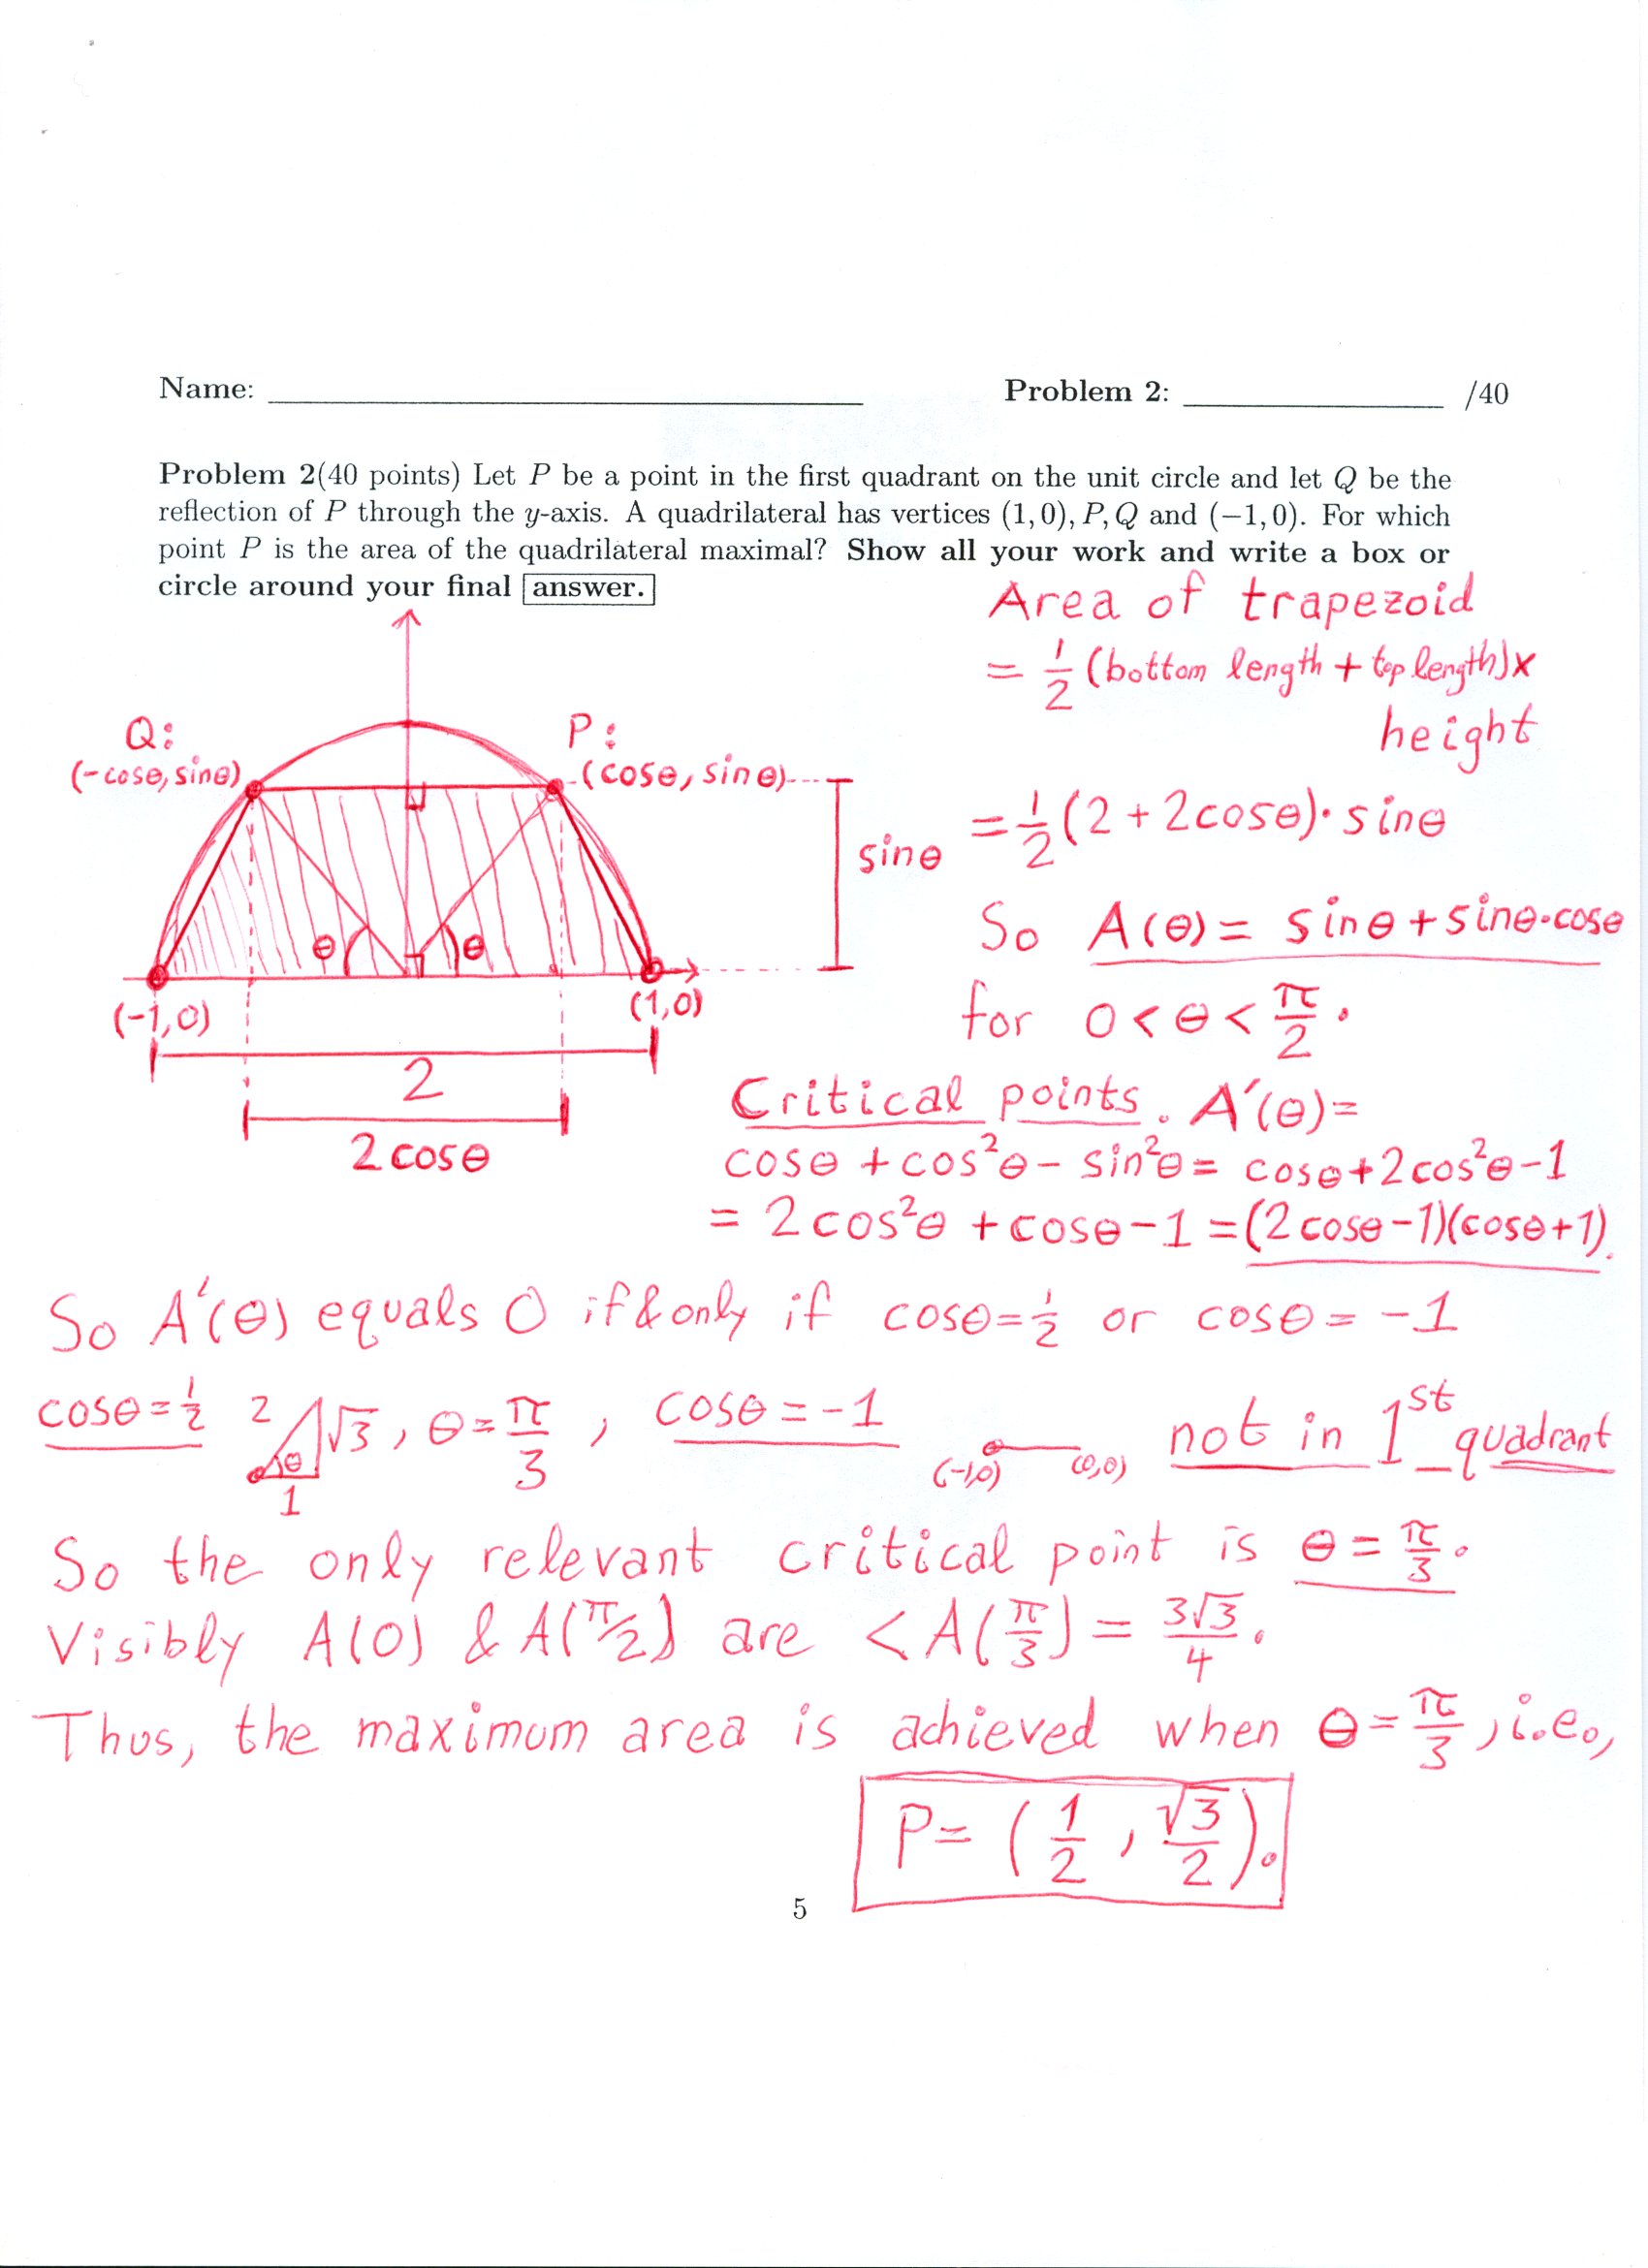 Name: Problem 2: /40
Problem 2(40 points) Let P be a point in the first quadrant on the unit circle and let Q be the
reflection of P through the y-axis. A quadrilateral has vertices (1,0), P, Q and (−1,0). For which
point P is the area of the quadrilateral maximal? Show all your work and write a box or
circle around your final answer.
Area of trapezoid
= 1/2 (bottom length + top length) x
height
= 1/2 (2 + 2cosθ)· sinθ
So A(θ) = sinθ + sinθ·cosθ
for 0 < θ < π/2 .
Q:
(-cosθ, sinθ)
P:
(cosθ, sinθ)
sinθ
θ
θ
(-1,0)
(1,0)
2
2 cosθ
Critical points. A′(θ) =
cosθ + cos²θ − sin²θ = cosθ + 2cos²θ − 1
= 2cos²θ + cosθ − 1 = (2cosθ − 1)(cosθ + 1).
So A′(θ) equals 0 if & only if cosθ = 1/2 or cosθ = −1
cosθ = 1/2 2 √3 θ 1 , θ = π/3 , cosθ = −1 (-1,0) (0,0) not in 1st quadrant
So the only relevant critical point is θ = π/3 .
Visibly A(0) & A(π/2) are < A(π/3) = 3√3/4 .
Thus, the maximum area is achieved when θ = π/3 , i.e.,
P = (1/2 , √3/2).
5